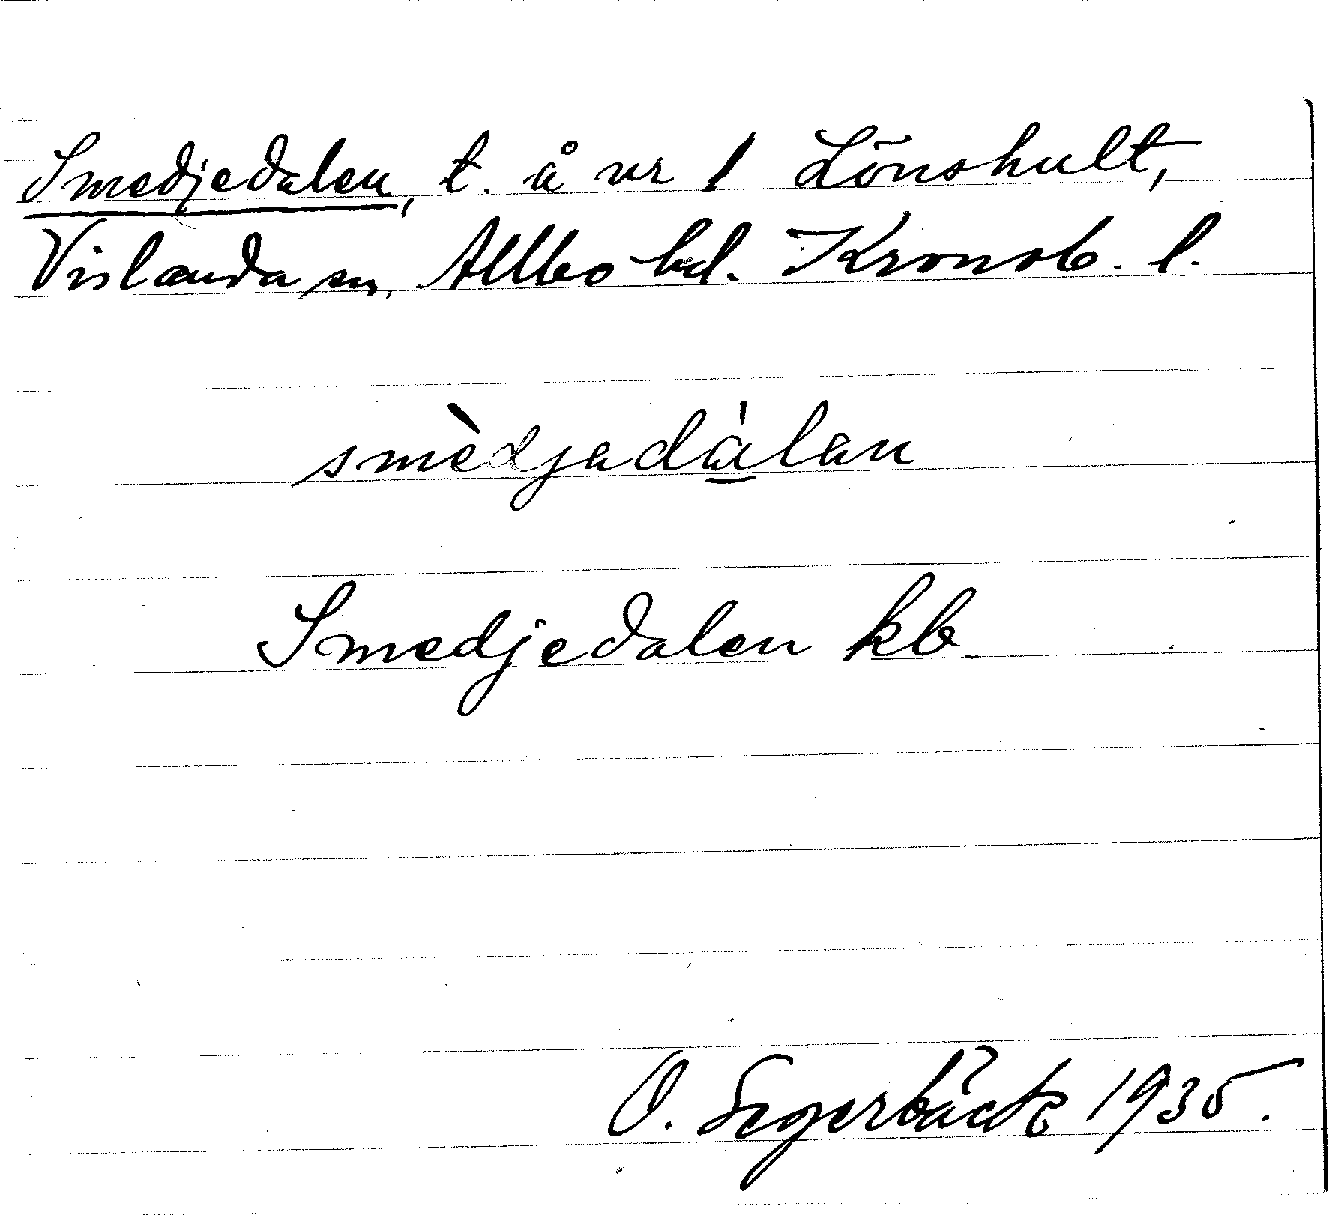 Smedjedalen, t. å nr 1 Lönshult,
Vislanda sn, Allbo hd. Kronob. l.
smèdjadàlan
Smedjedalen kb
O. Segerbäck 1935.